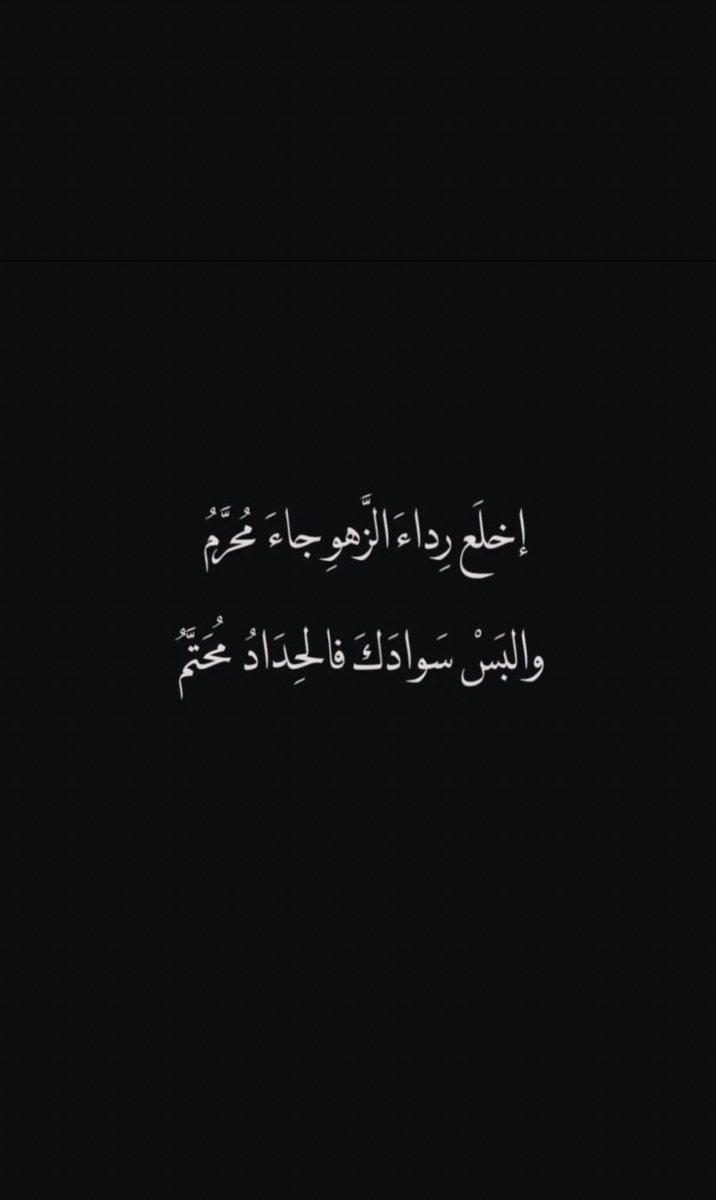 إخلَع رِداءَ الزَّهوِ جاءَ مُحَرَّمُ
والبَسْ سَوادَكَ فالحِدَادُ مُحَتَّمُ